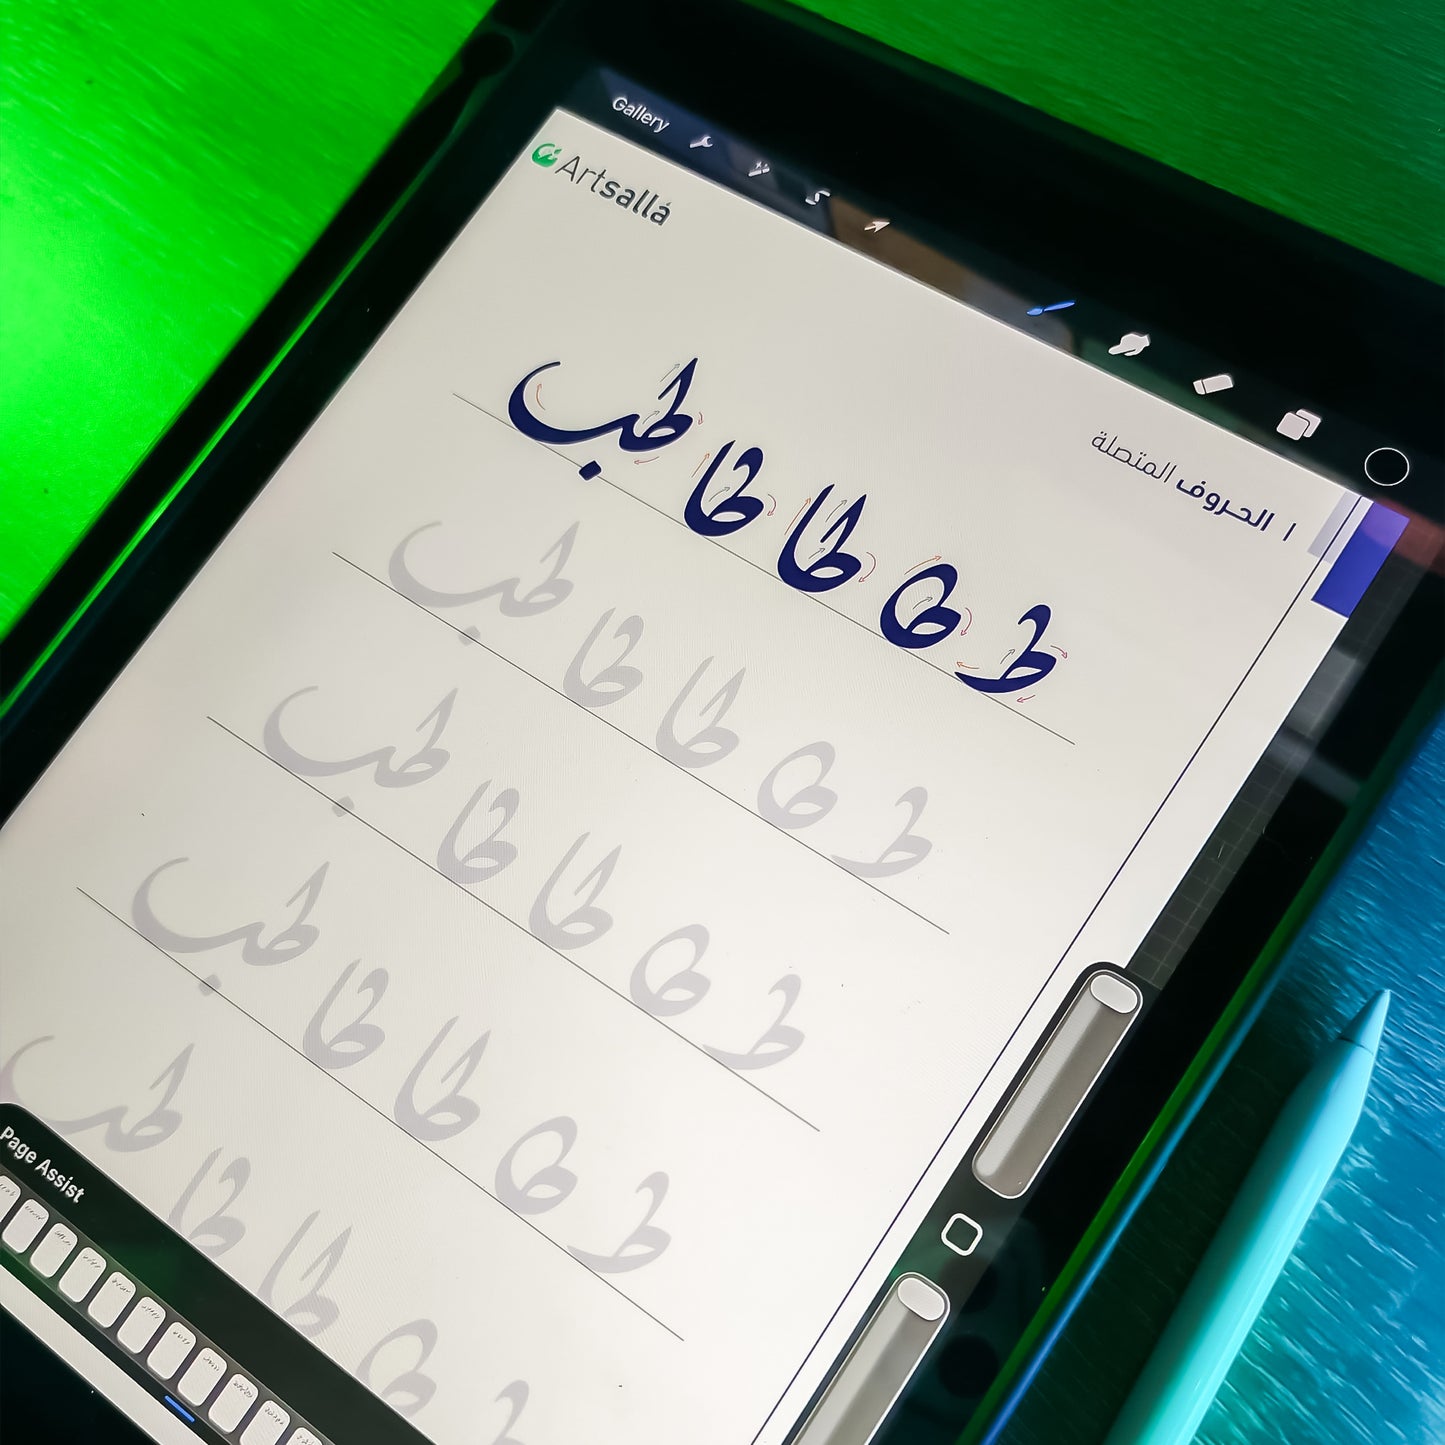 Gallery
Artsallá
| الحروف المتصلة
ط طا طا طا طب
ط طا طا طا طب
ط طا طا طا طب
ط طا طا طا طب
ط طا طا طا طب
Page Assist